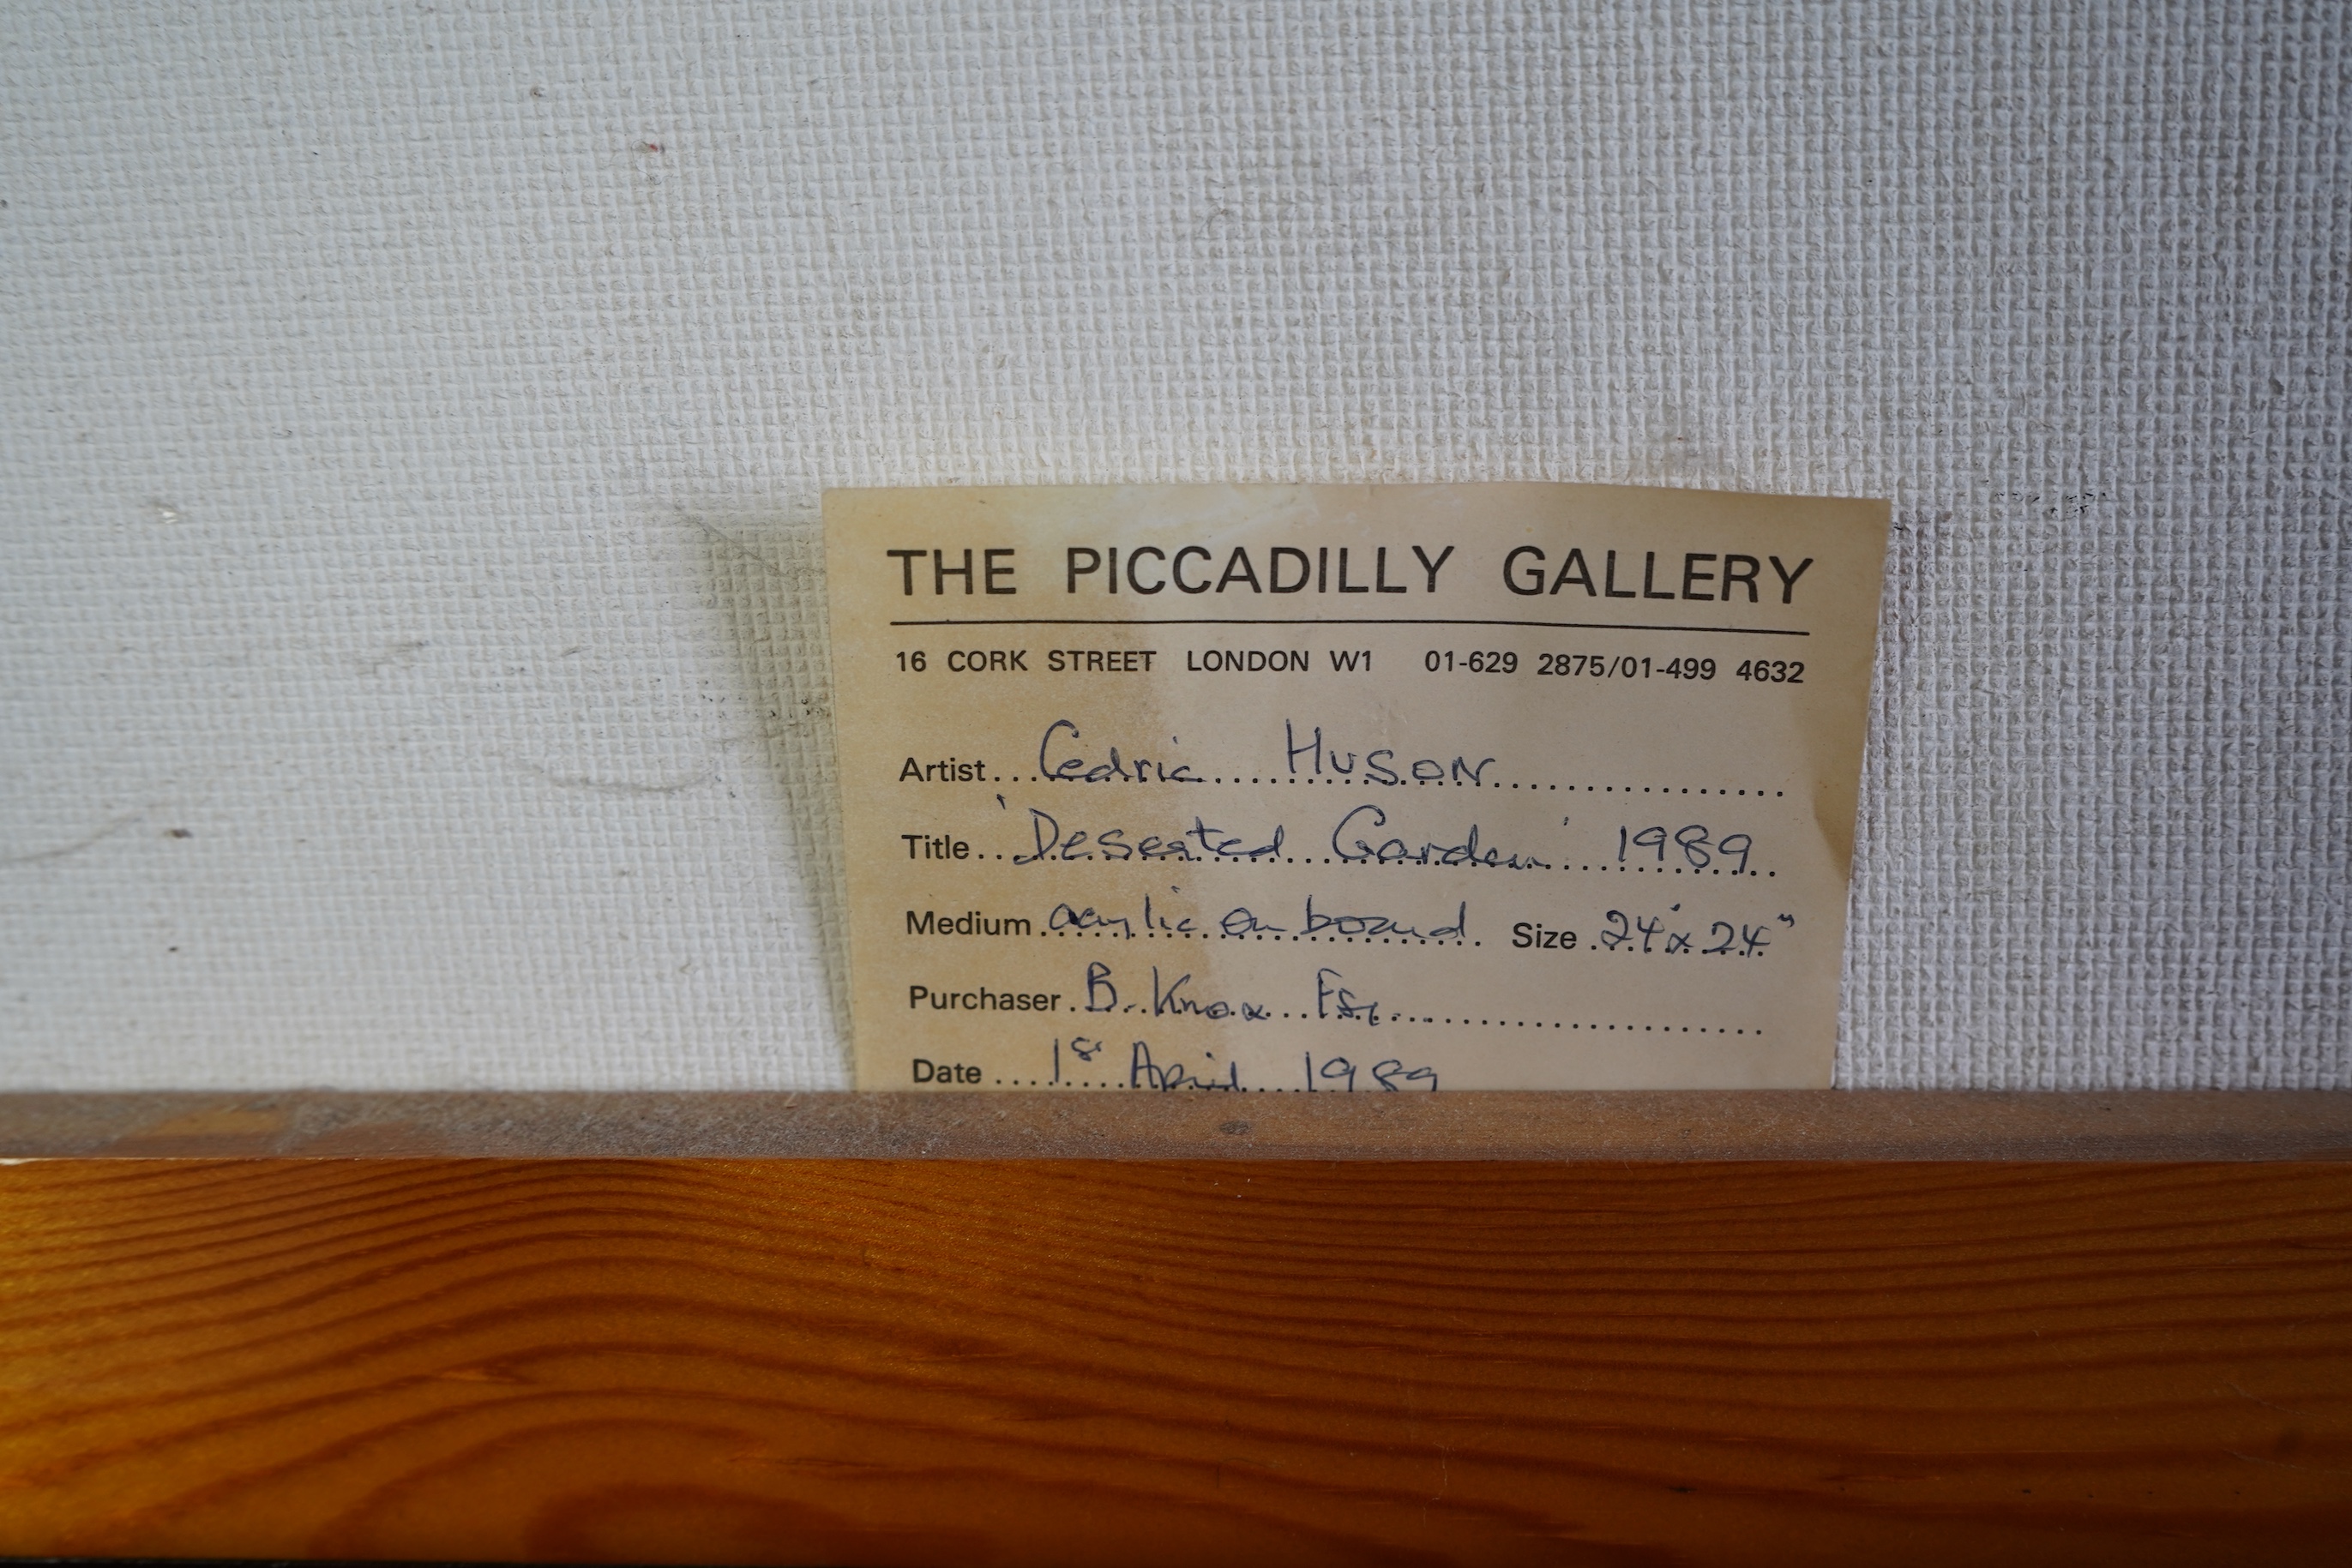 THE PICCADILLY GALLERY
16 CORK STREET LONDON W1 01-629 2875/01-499 4632
Artist...Cedric Huson
Title...'Deserted Garden' 1989
Medium.acrylic on board. Size.24"x 24"
Purchaser.B. Knox Esq.
Date....1st April 1989